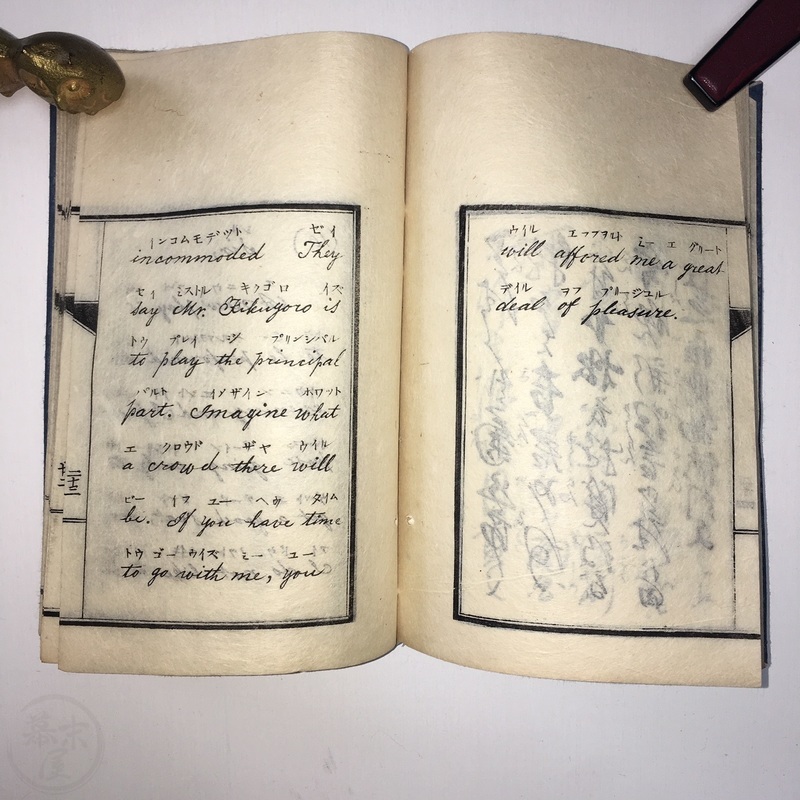 インコムモデツト ゼイ
incommoded They
セィ ミストル キクゴロ イズ
say Mr. Kikugoro is
トウ プレイ ジ プリンシパル
to play the principal
パルト イメザイン ホワット
part. Imagine what
エ クロウド ザヤ ウイル
a crowd there will
ビー イフ ユー ヘヴ タイム
be. If you have time
トウ ゴー ウイズ ミー ユー
to go with me, you
ウイル エッフヲルド ミー エ グリート
will affored me a great
デイル ヲフ プリージユル
deal of pleasure.
二十三
幕末屋